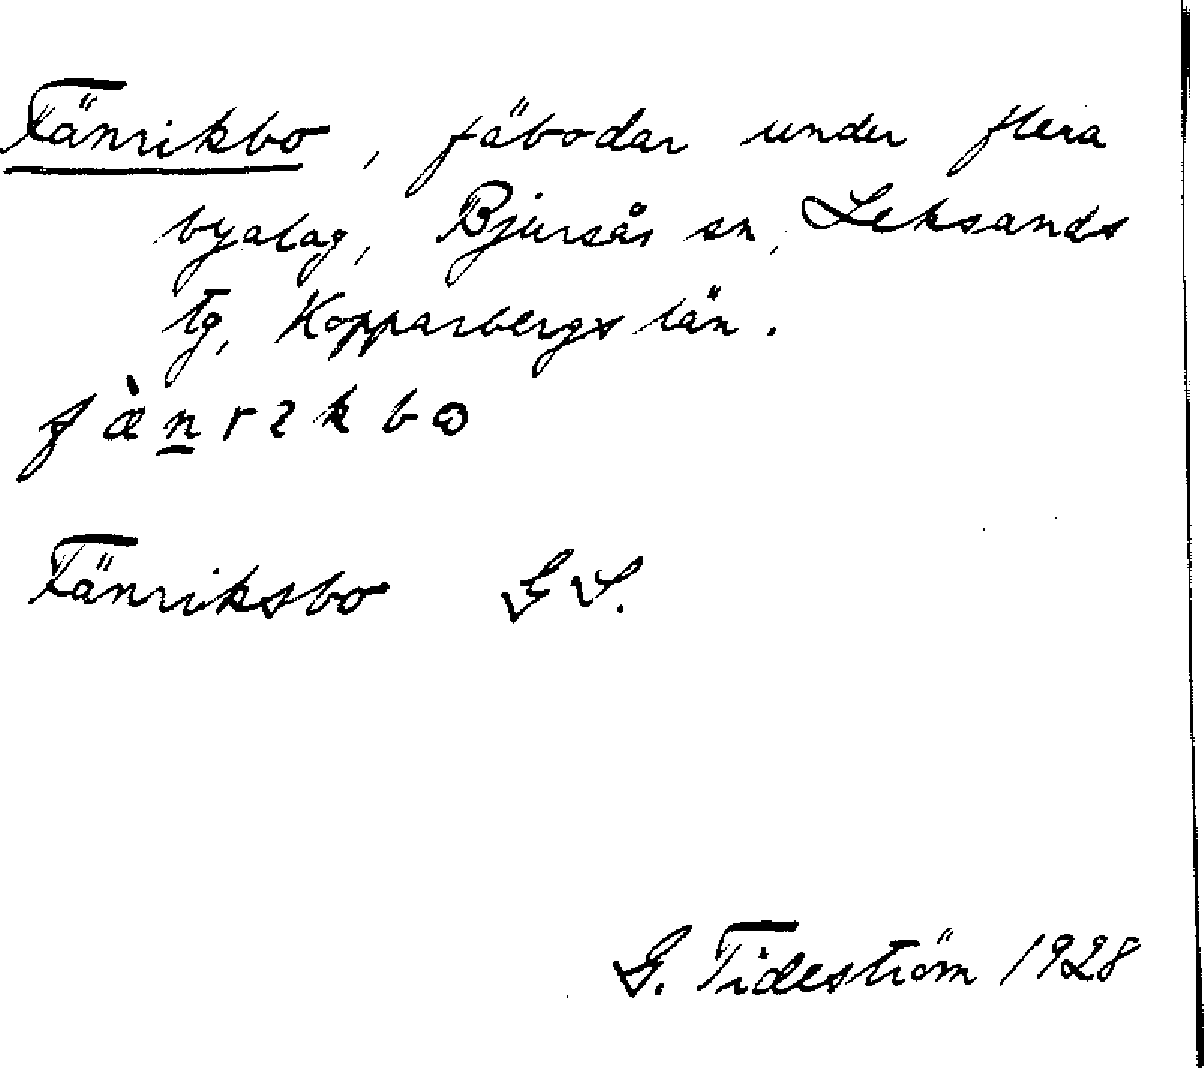 Fänrikbo, fäbodar under flera
byalag, Bjursås sn, Leksands
tg, Kopparbergs län.
fæ̀n̲rɩkbo
Fänriksbo GS.
G. Tideström 1928